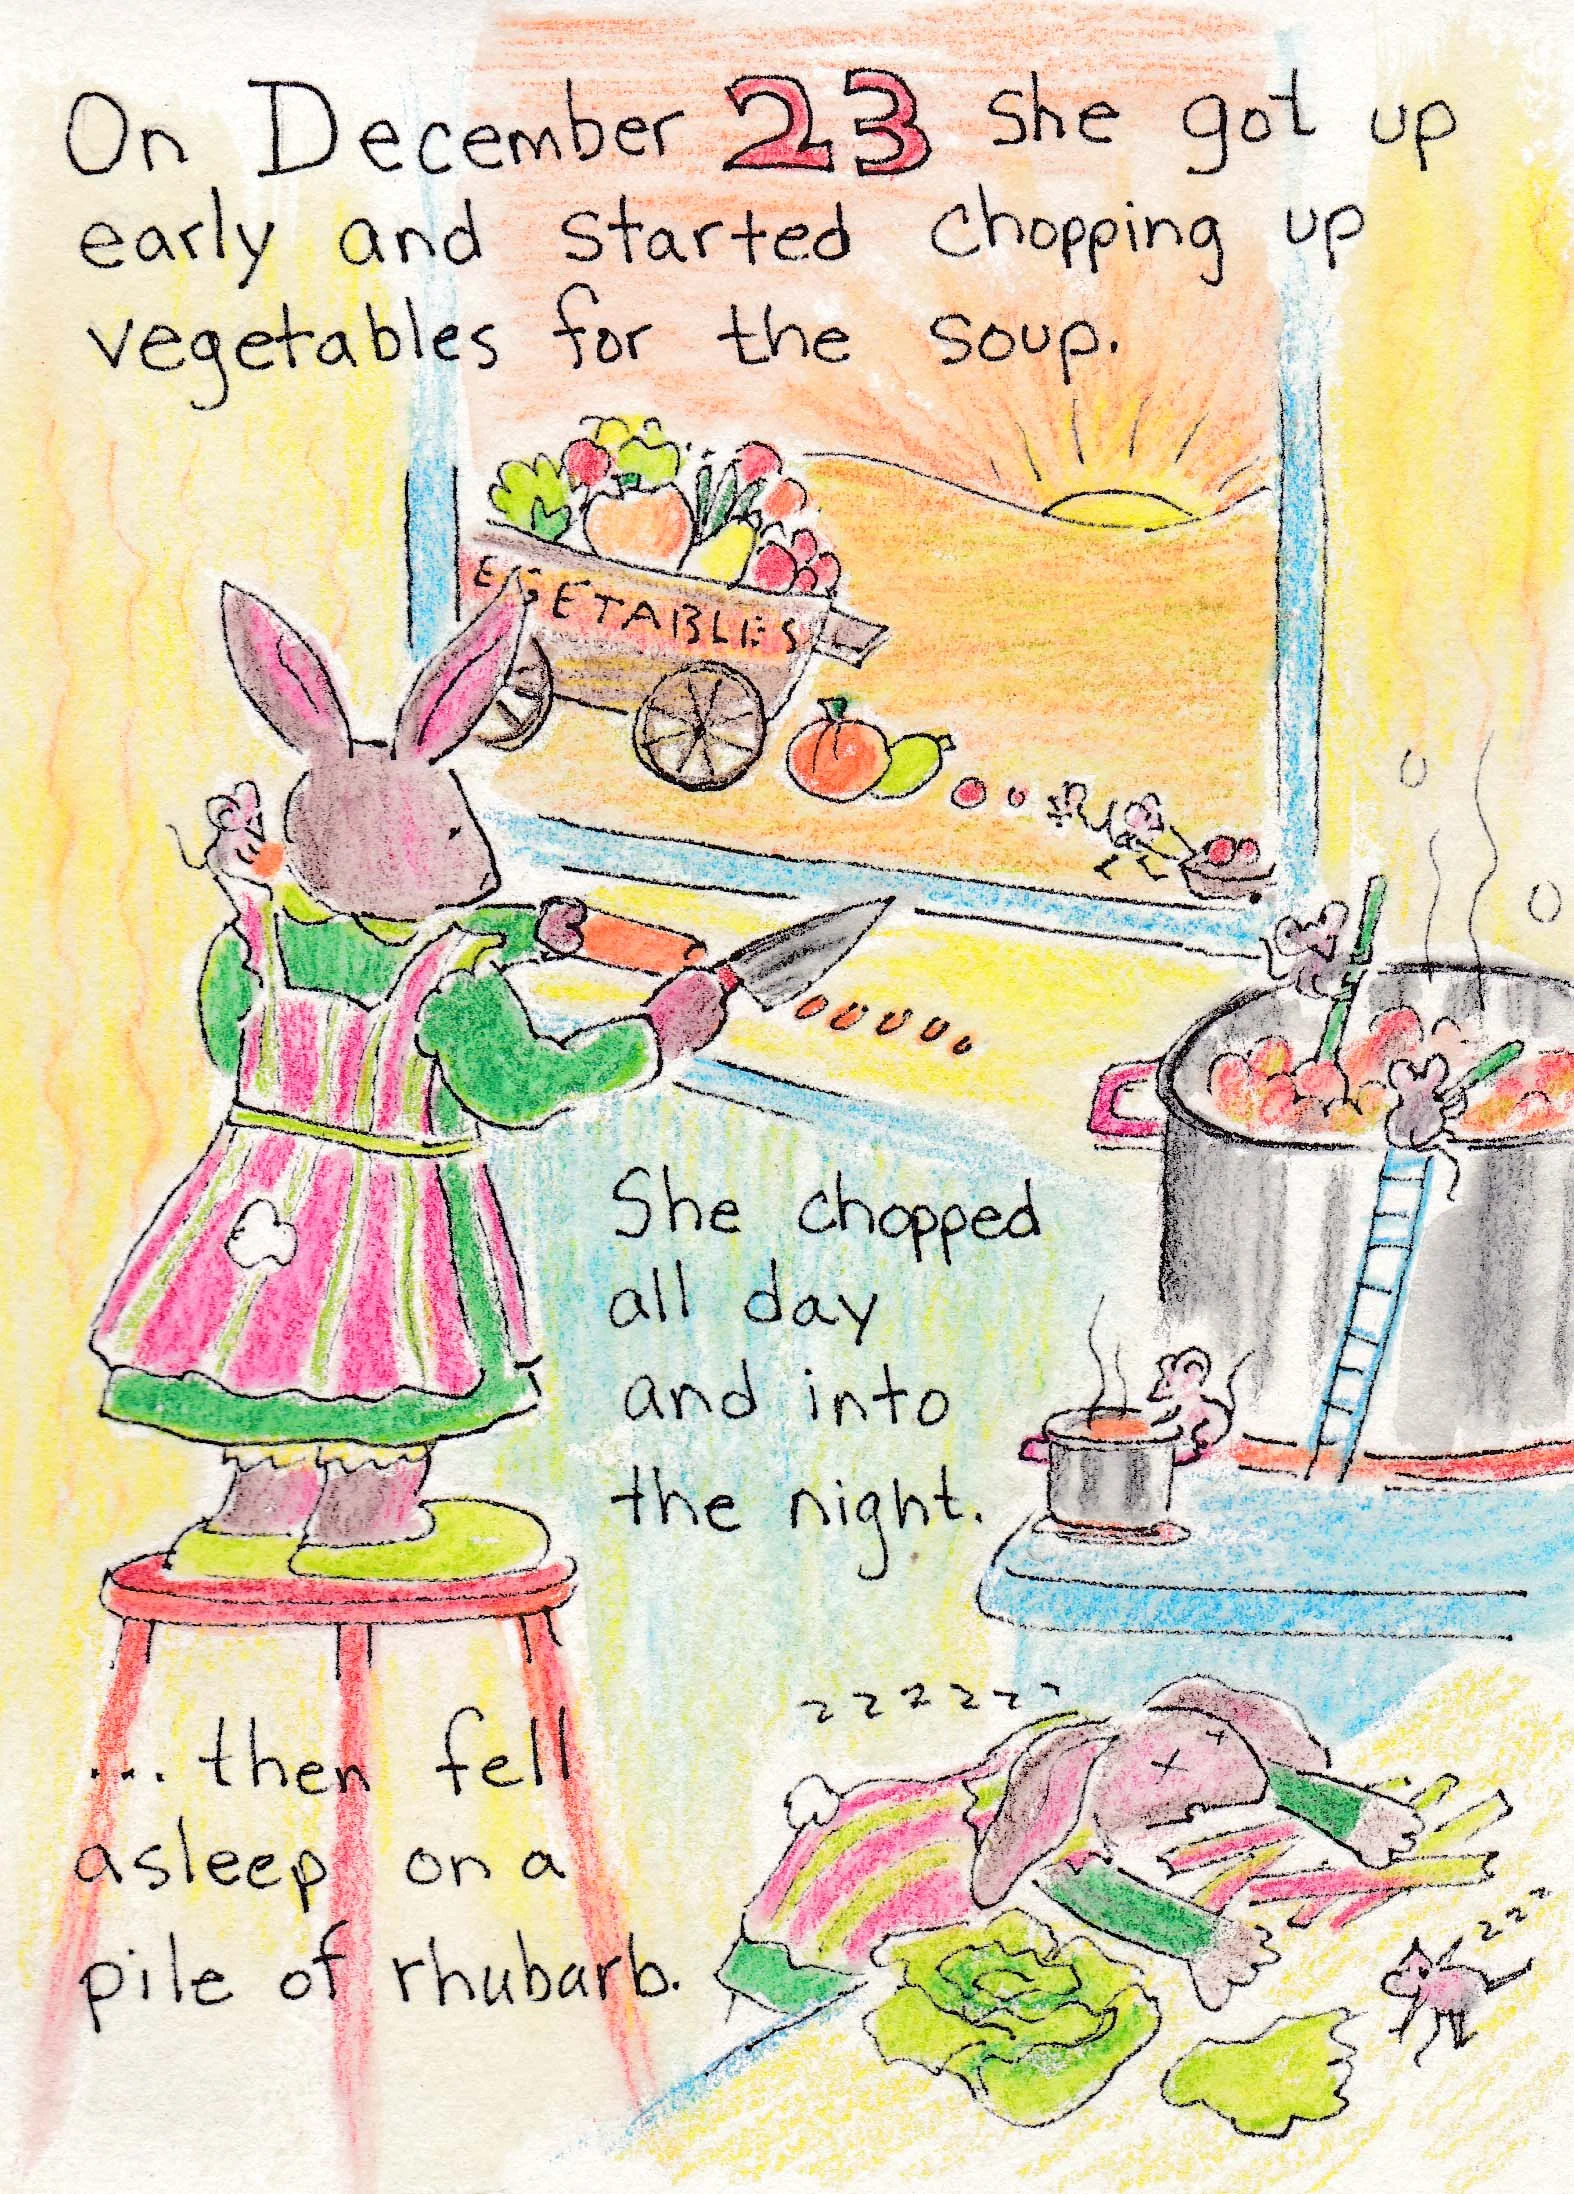 On December 23 she got up
early and started chopping up
vegetables for the soup.
EGETABLES
She chopped
all day
and into
the night.
zzzzzz
... then fell
asleep on a
pile of rhubarb.
zzz